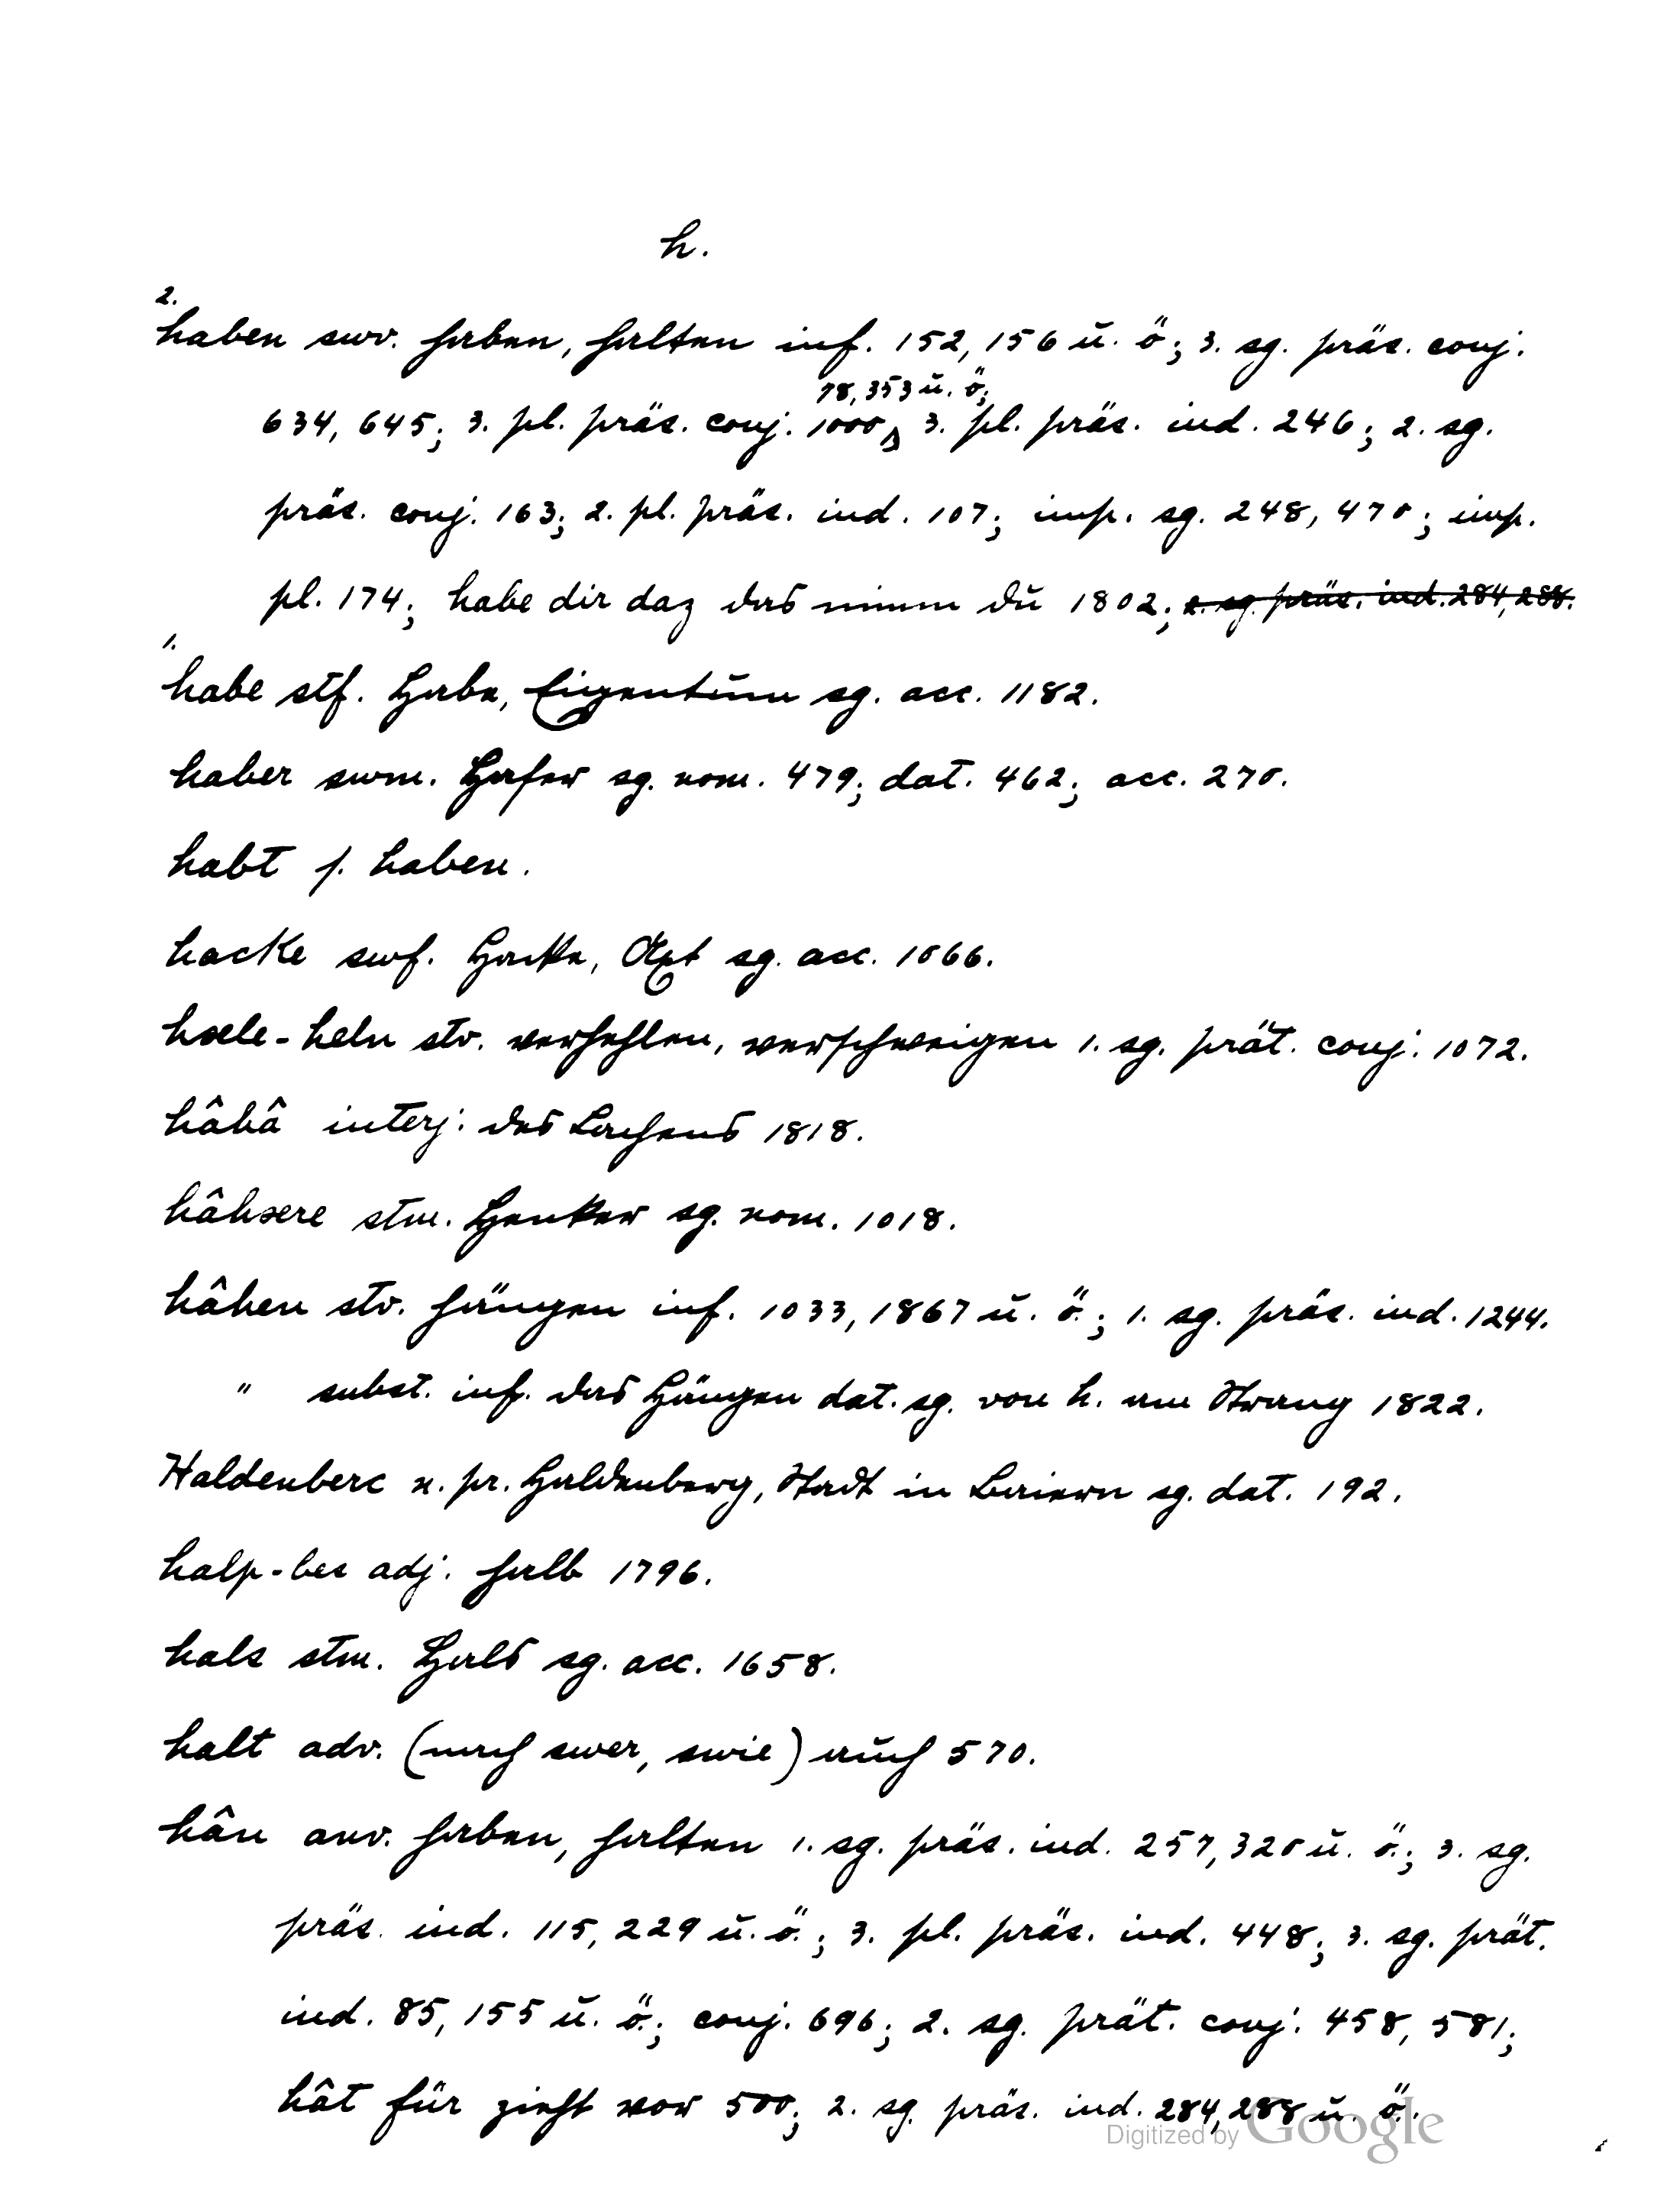 h.
2.
haben swv. haben, halten inf. 152, 156 u. ö; 3. sg. präs. conj.
78, 353 u. ö;
634, 645; 3. pl. präs. conj. 1000, 3. pl. präs. ind. 246; 2. sg.
präs. conj. 163; 2. pl. präs. ind. 107; imp. sg. 248, 470; imp.
pl. 174; habe dir daz das nimm du 1802; 2. sg. präs. ind. 284, 288.
1.
habe stf. Habe, Eigentum sg. acc. 1182.
haber swm. Hafer sg. nom. 479; dat. 462; acc. 270.
habt s. haben.
hacke swf. Hacke, Axt sg. acc. 1066.
hæle-heln stv. verhehlen, verschweigen 1. sg. prät. conj. 1072.
hâhâ interj. des Lachens 1818.
hâhære stm. Henker sg. nom. 1018.
hâhen stv. hängen inf. 1033, 1867 u. ö.; 1. sg. präs. ind. 1244.
" subst. inf. das Hängen dat. sg. von h. am Strang 1822.
Haldenberc n. pr. Haldenberg, Stadt in Baiern sg. dat. 192.
halp-bes adj. halb 1796.
hals stm. Hals sg. acc. 1658.
halt adv. (nach swer, swie) auch 570.
hân anv. haben, halten 1. sg. präs. ind. 257, 320 u. ö.; 3. sg.
präs. ind. 115, 229 u. ö.; 3. pl. präs. ind. 448; 3. sg. prät.
ind. 85, 155 u. ö.; conj. 696; 2. sg. prät. conj. 458, 581;
hât für zieht vor 500; 2. sg. präs. ind. 284, 288 u. ö.
Digitized by Google